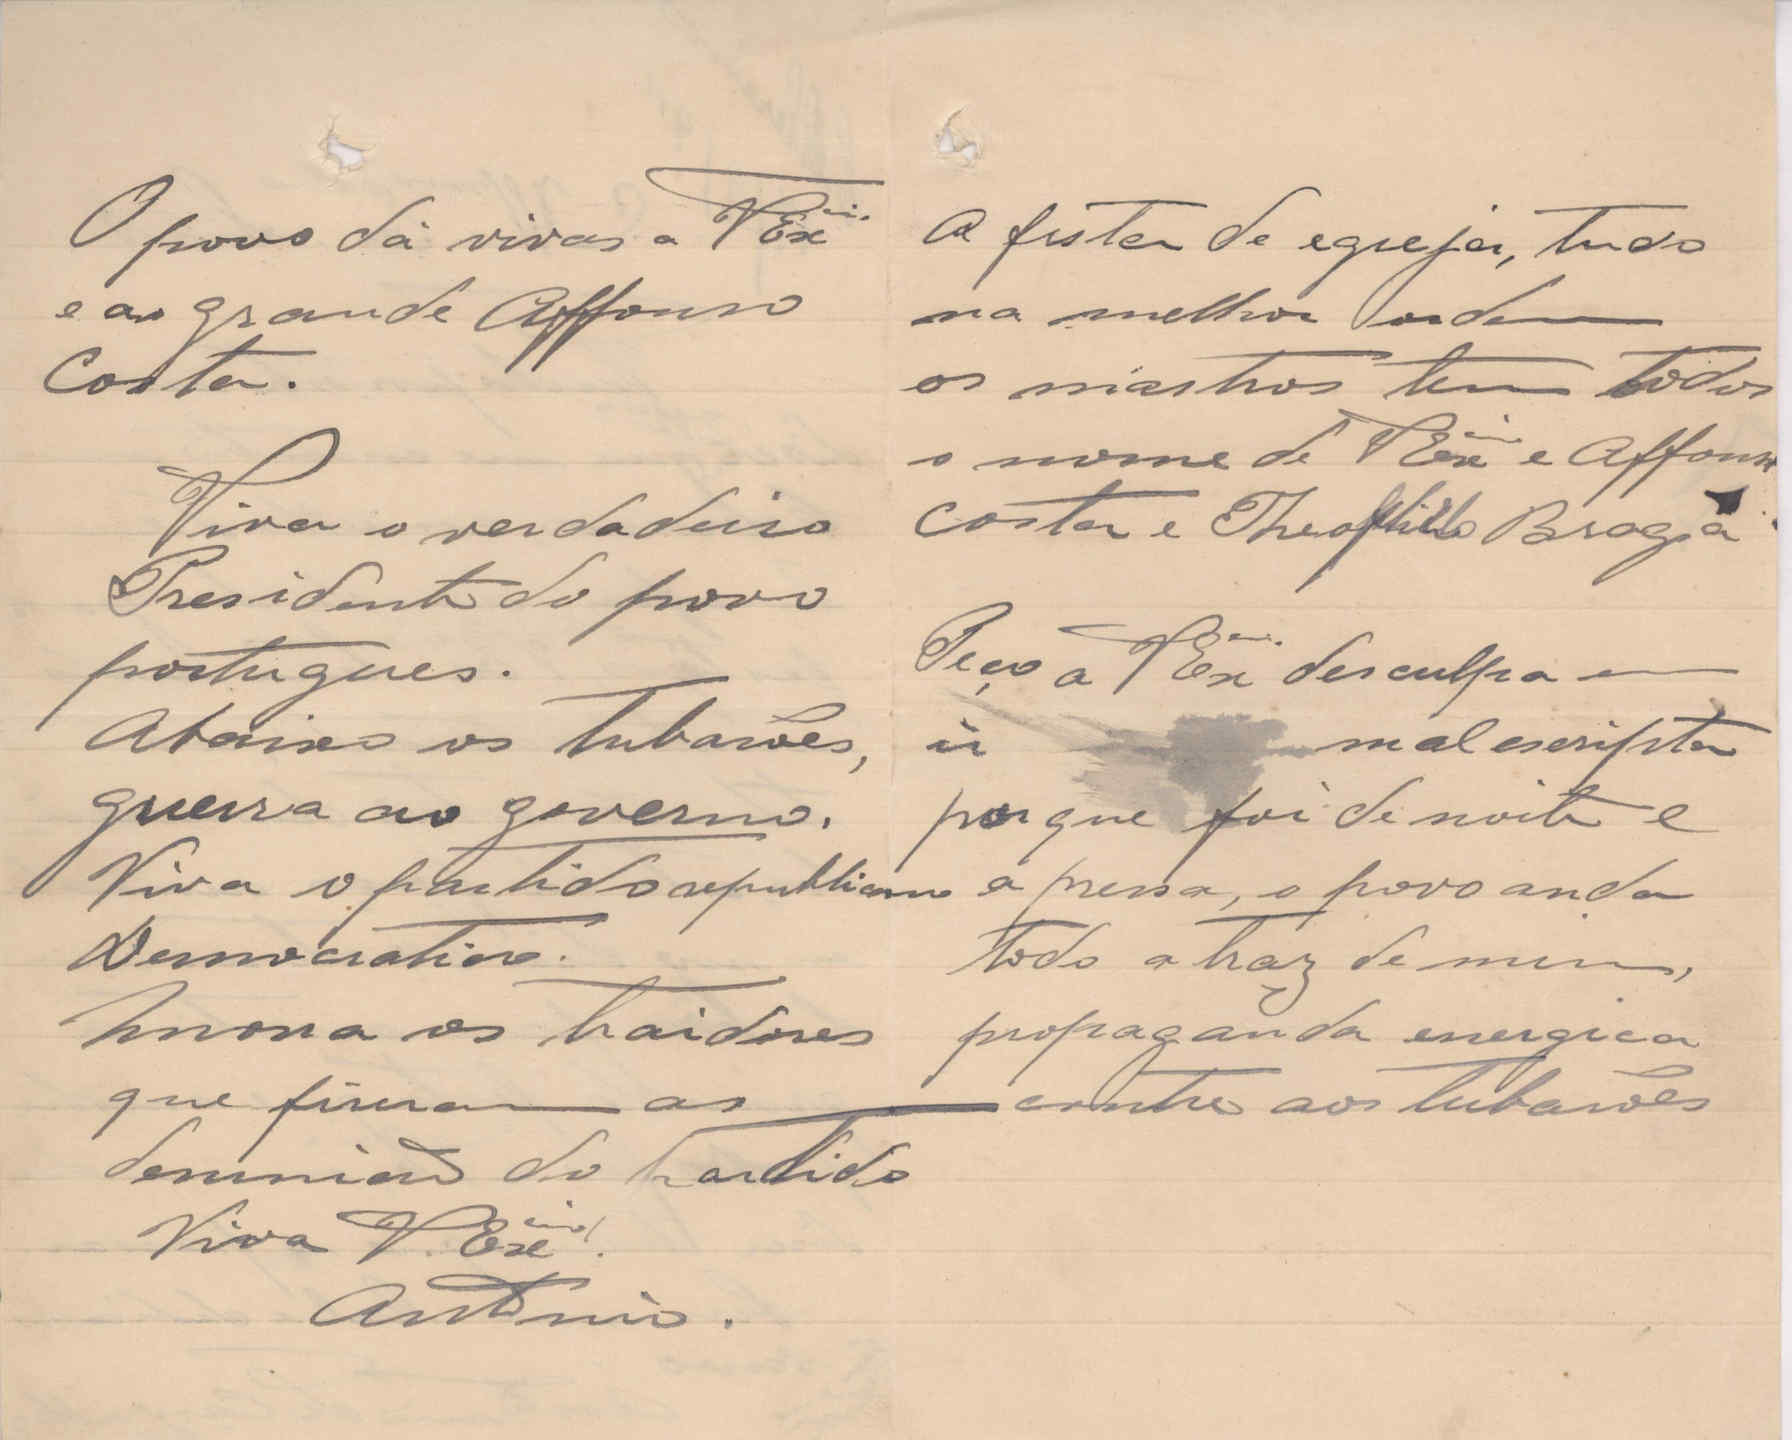 O povo dá vivas a V Exª
e ao grande Affonso
Costa.
Viva o verdadeiro
Presidente do povo
portugues.
Abaixo os tubarões,
guerra ao governo.
Viva o partido republicano
Democratico.
Morra os traidores
que fiseram as
desunião do partido
Viva V. Exª!
Antonio.
A festa de egreja, tudo
na melhor ordem
os mastros tem todos
o nome de V Exª e Affonso
Costa e Theophilo Braga
Peço a V Exª desculpa em
ir mal escripta
porque foi de noite e
a pressa, o povo anda
todo a traz de mim,
propaganda energica
contra aos tubarões